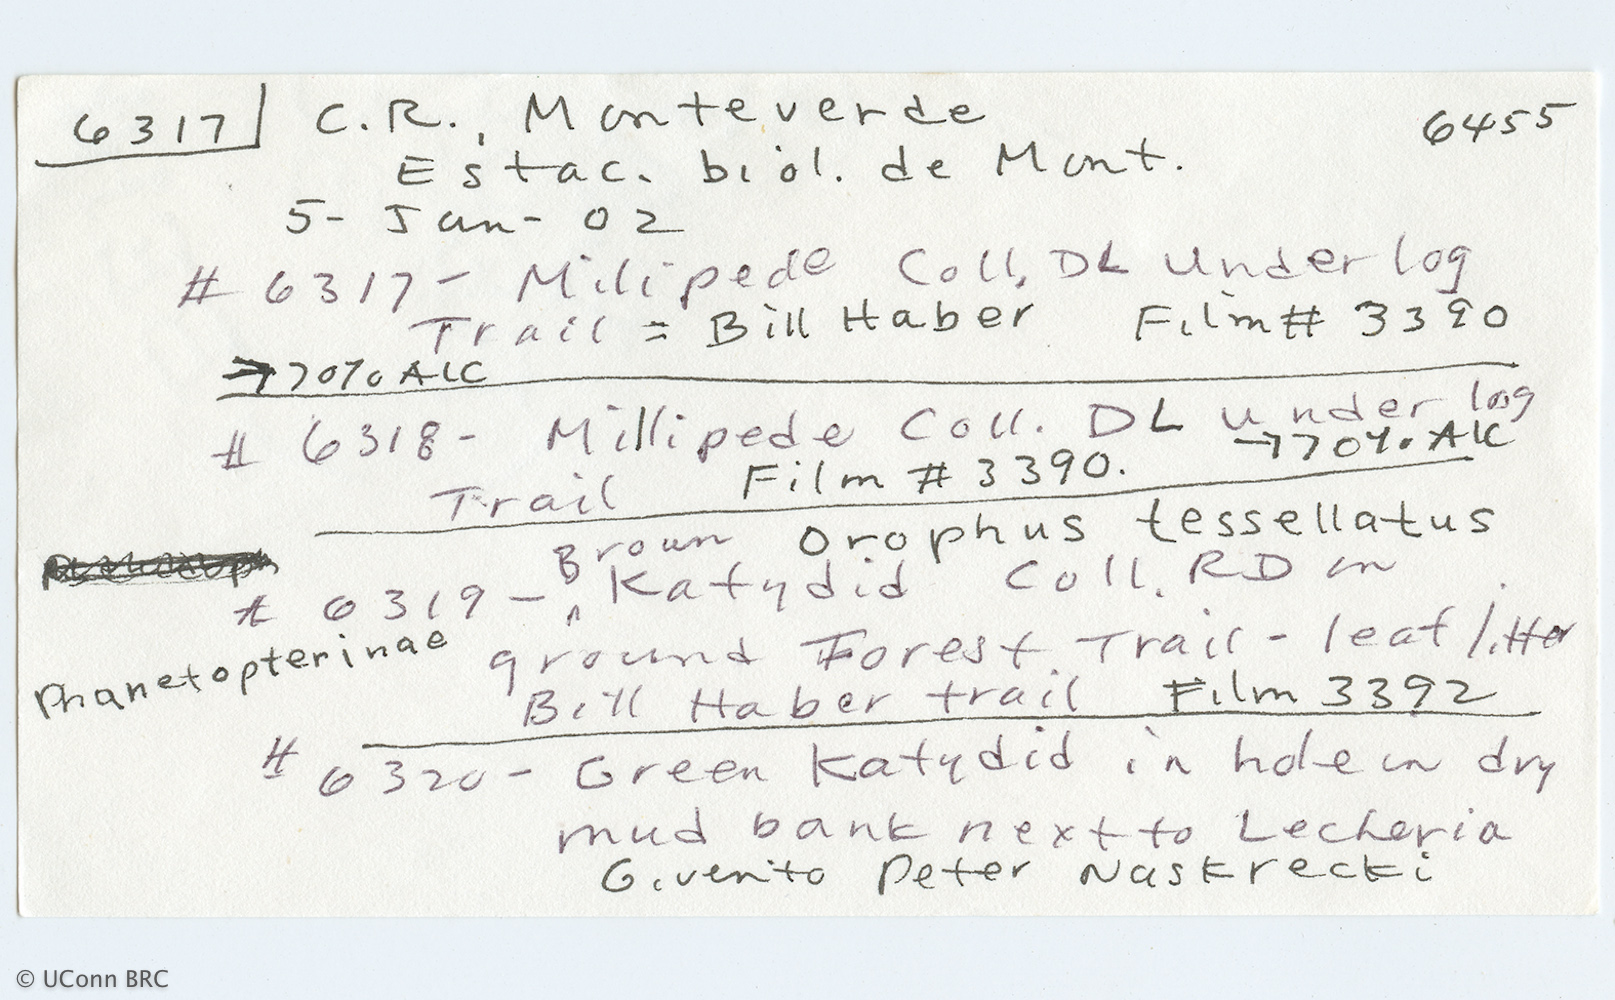 6317 C.R., Monteverde 6455
Estac. biol. de Mont.
5-Jan-02
# 6317- Milipede Coll. DL Under log
Trail = Bill Haber Film# 3390
→ 70% Alc
# 6318- Millipede Coll. DL under log
→ 70% Alc
Trail Film # 3390.
Brown Orophus tessellatus
# 6319- ^ Katydid Coll. RD on
Phanetopterinae ground Forest Trail - leaf litter
Bill Haber trail Film 3392
# 6320- Green Katydid in hole in dry
mud bank next to Lecheria
G.vento Peter Naskrecki